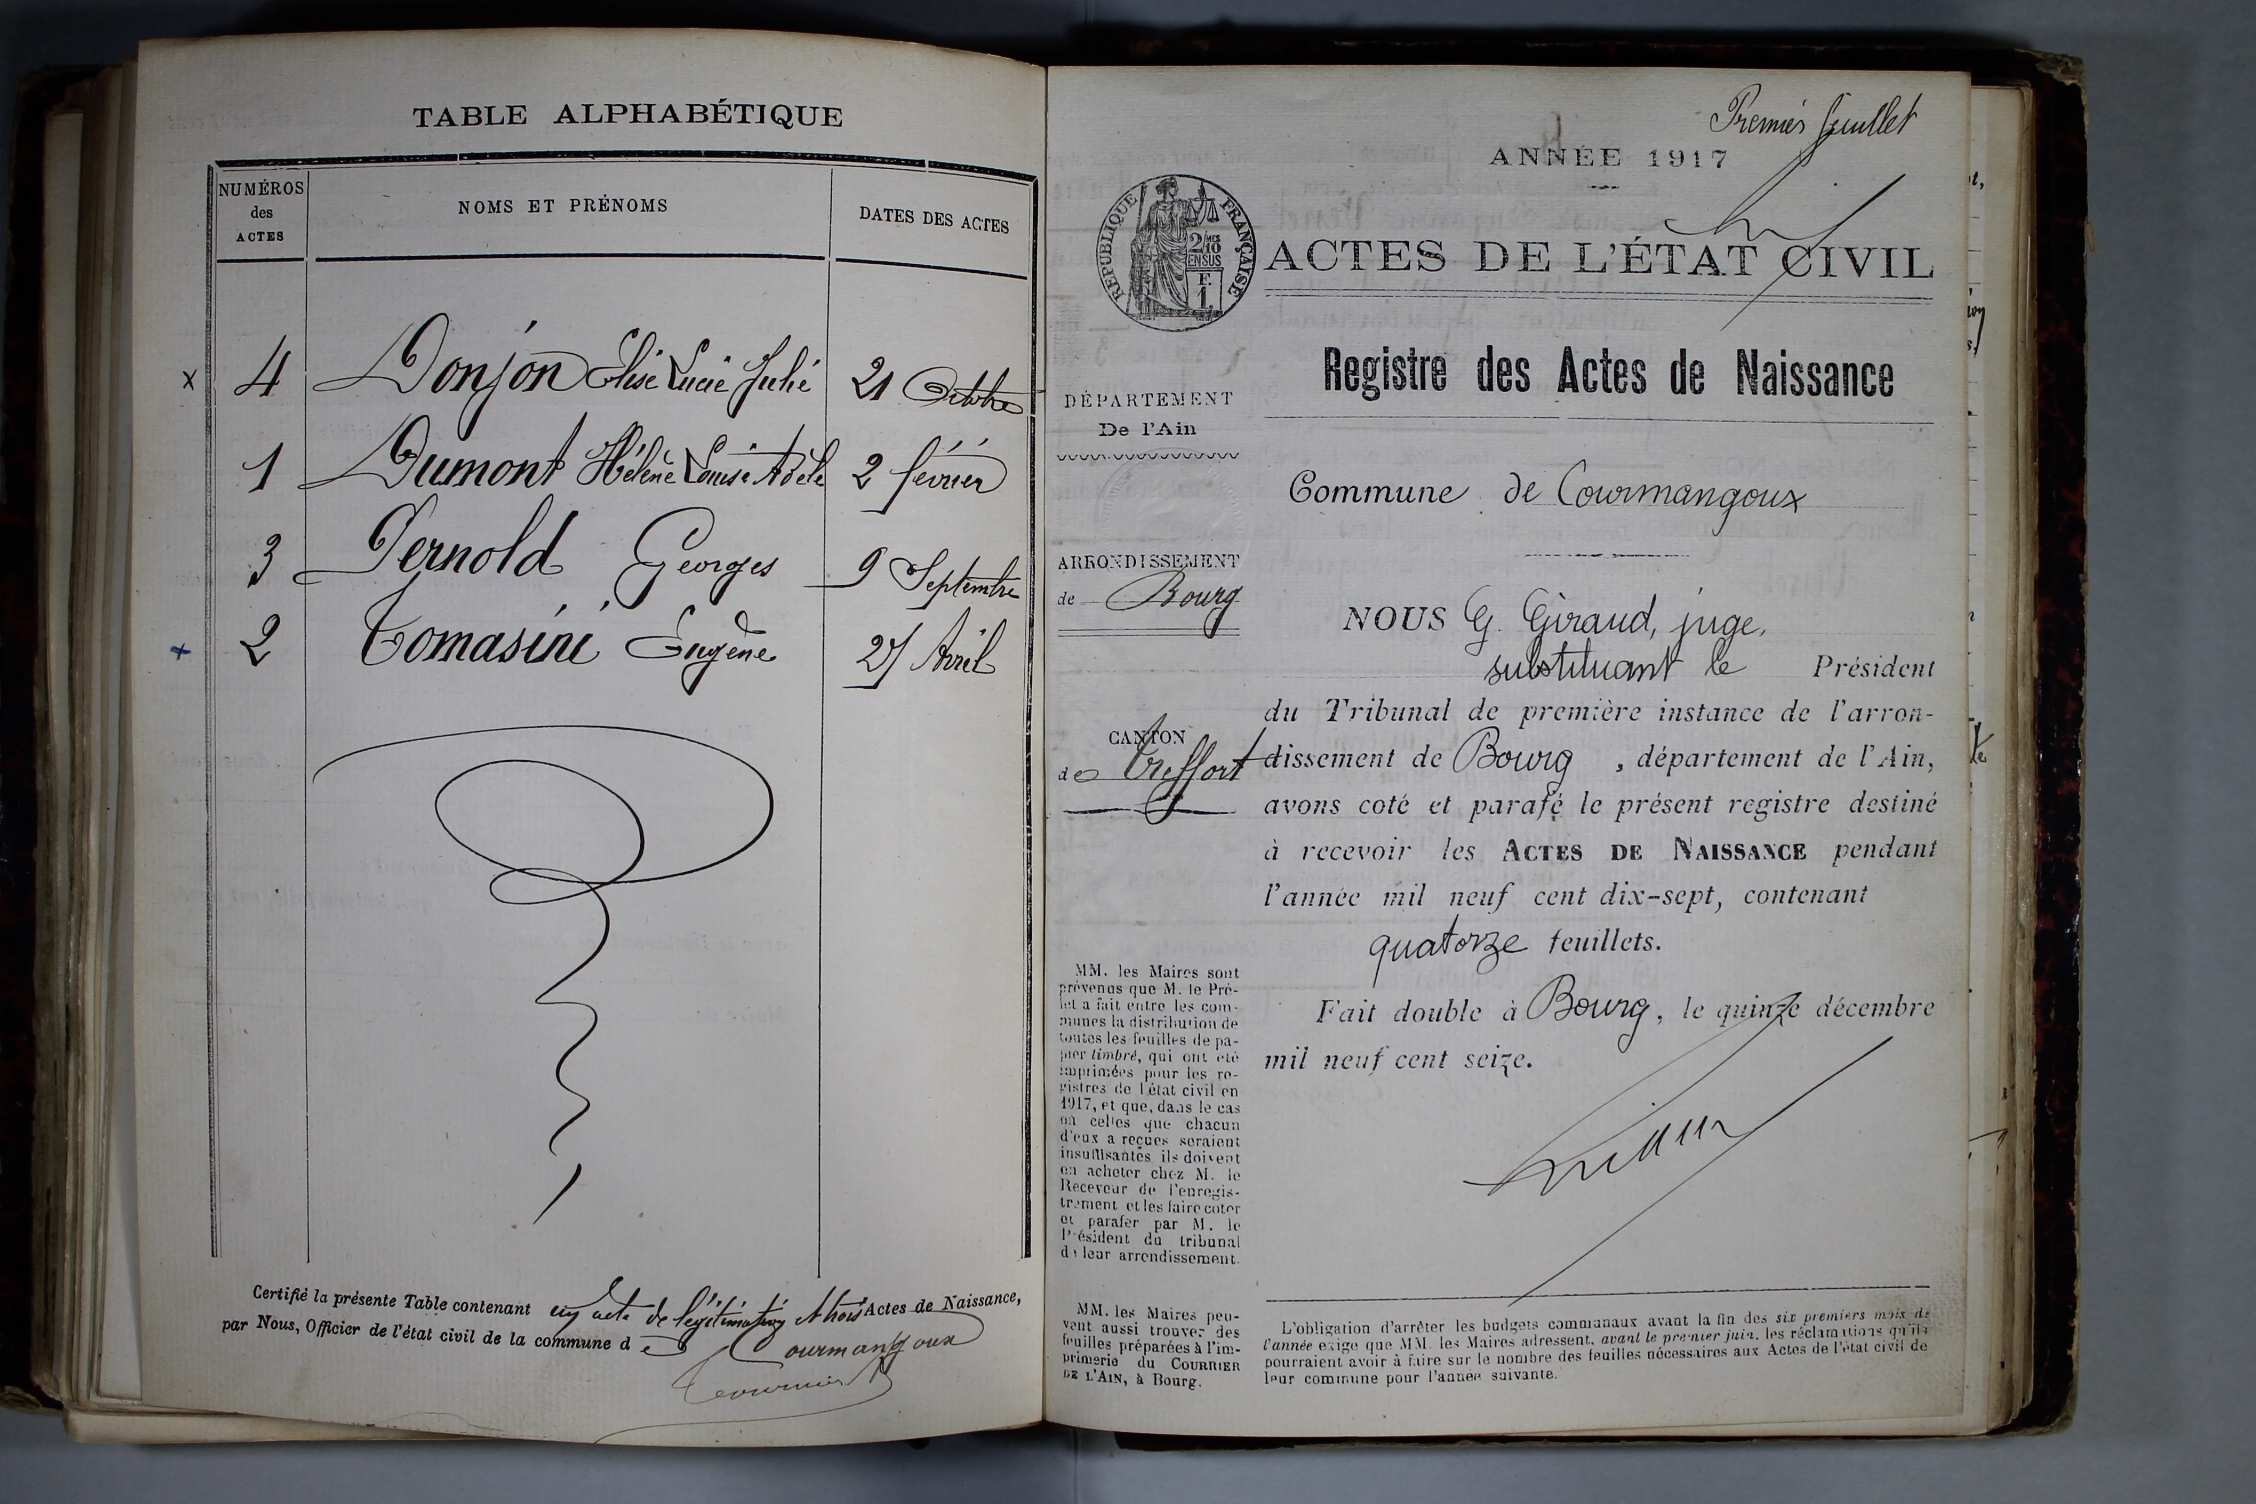 TABLE ALPHABÉTIQUE
NUMÉROS
des
ACTES
NOMS ET PRÉNOMS
DATES DES ACTES
x 4 Donjon Elise Lucie Julie 21 Octobre
1 Dumont Hélène Louise Adèle 2 février
3 Pernold Georges 9 Septembre
+ 2 Tomasini Eugène 27 Avril
Certifié la présente Table contenant un acte de légitimation et trois Actes de Naissance,
par Nous, Officier de l'état civil de la commune de Courmangoux
Premier feuillet
ANNÉE 1917
RÉPUBLIQUE FRANÇAISE
2/10 MES
EN SUS
F.
1.
ACTES DE L'ÉTAT CIVIL
Registre des Actes de Naissance
DÉPARTEMENT
De l'Ain
Commune de Courmangoux
ARRONDISSEMENT
de Bourg
CANTON
de Treffort
NOUS G. Giraud, juge,
substituant le Président
du Tribunal de première instance de l'arron-
dissement de Bourg, département de l'Ain,
avons coté et parafé le présent registre destiné
à recevoir les ACTES DE NAISSANCE pendant
l'année mil neuf cent dix-sept, contenant
quatorze feuillets.
Fait double à Bourg, le quinze décembre
mil neuf cent seize.
MM. les Maires sont
prévenus que M. le Pré-
fet a fait entre les com-
munes la distribution de
toutes les feuilles de pa-
pier timbré, qui ont été
imprimées pour les re-
gistres de l'état civil en
1917, et que, dans le cas
où celles que chacun
d'eux a reçues seraient
insuffisantes ils doivent
en acheter chez M. le
Receveur de l'enregis-
trement et les faire coter
et parafer par M. le
Président du tribunal
de leur arrondissement.
MM. les Maires peu-
vent aussi trouver des
feuilles préparées à l'im-
primerie du COURRIER
DE L'AIN, à Bourg.
L'obligation d'arrêter les budgets communaux avant la fin des six premiers mois de
l'année exige que MM. les Maires adressent, avant le premier juin, les réclamations qu'ils
pourraient avoir à faire sur le nombre des feuilles nécessaires aux Actes de l'état civil de
leur commune pour l'année suivante.